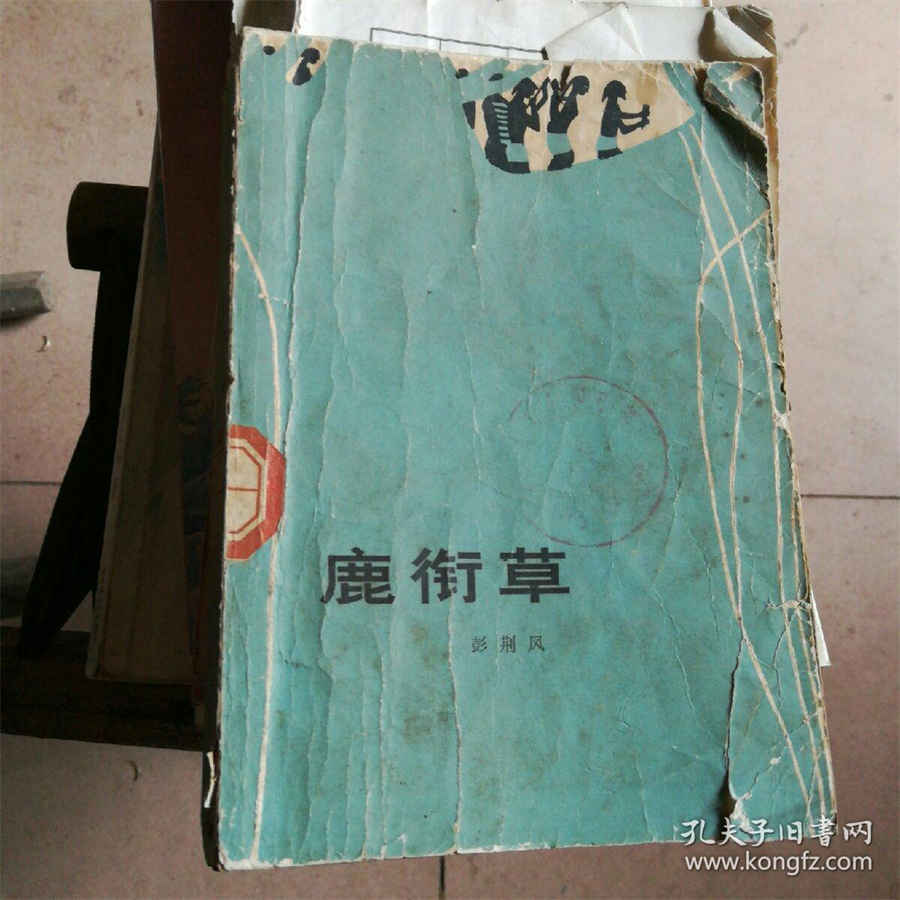 鹿衔草
彭荆风
孔夫子旧书网
www.kongfz.com